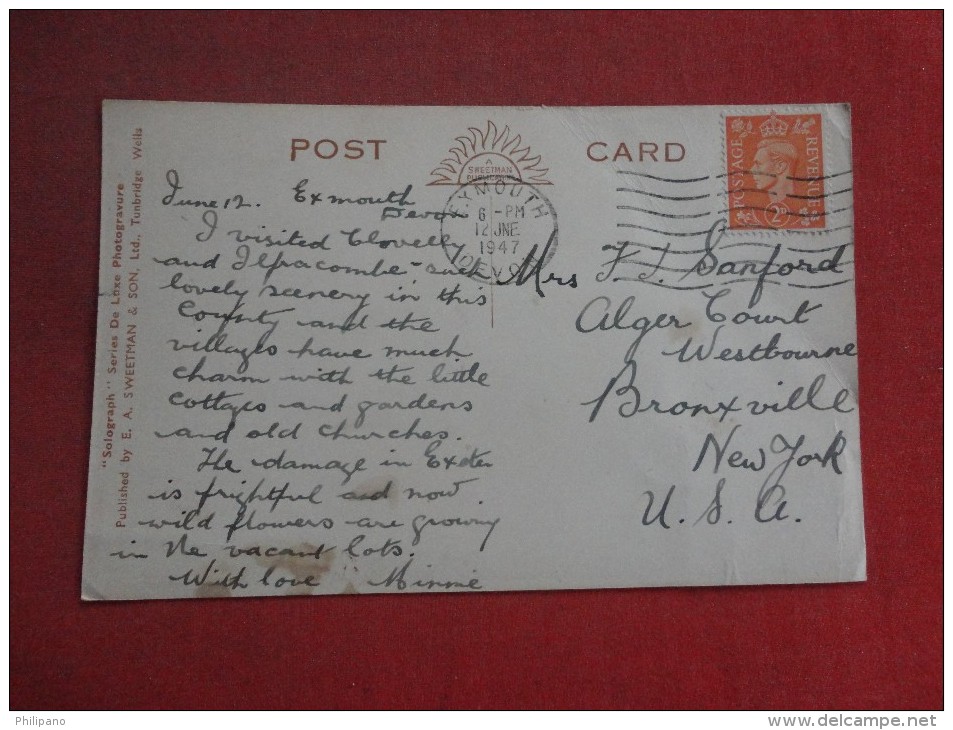 POST CARD
A
SWEETMAN
PUBLICATION
POSTAGE REVENUE
2D
EXMOUTH
6 - PM
12 JNE
1947
DEVON
"Solograph" Series De Luxe Photogravure
Published by E. A. SWEETMAN & SON, Ltd., Tunbridge Wells
June 12. Exmouth
Devon
I visited Clovelly
and Ilfracombe - such
lovely scenery in this
County and the
villages have much
charm with the little
cottages and gardens
and old churches.
The damage in Exeter
is frightful and now
wild flowers are growing
in the vacant lots.
With love Minnie
Mrs F. J. Sanford
Alger Court
Westbourne
Bronxville
New York
U. S. A.
Philipano
www.delcampe.net